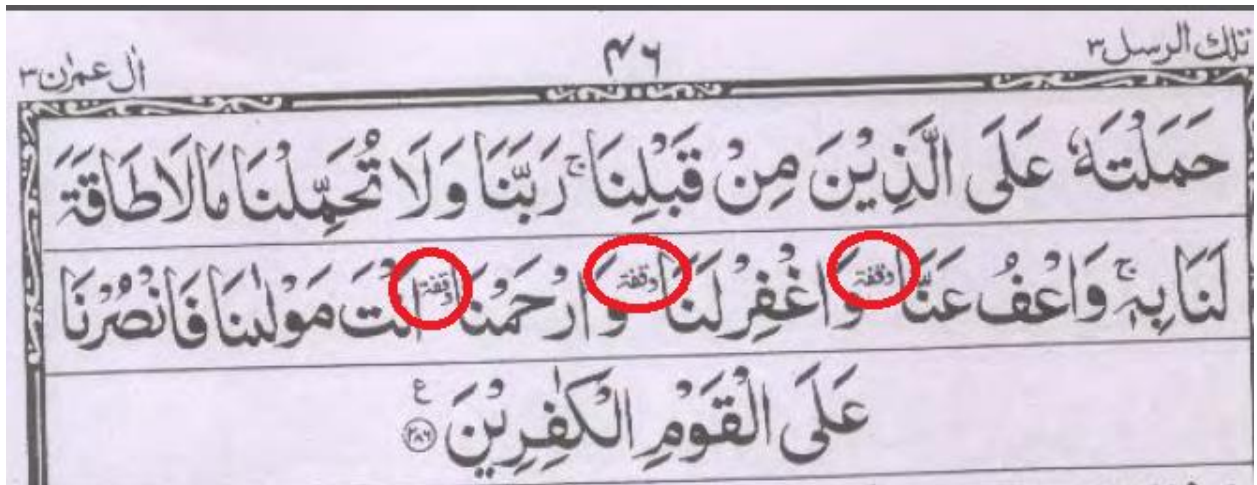 تلك الرسل ٣ ٤٦ اٰل عمرٰن ٣
حَمَلْتَهٗ عَلَى الَّذِيْنَ مِنْ قَبْلِنَا ۚ رَبَّنَا وَلَا تُحَمِّلْنَا مَالَا طَاقَةَ
لَنَا بِهٖ ۚ وَاعْفُ عَنَّا وقفة وَاغْفِرْ لَنَا وقفة وَارْحَمْنَا وقفة اَنْتَ مَوْلٰىنَا فَانْصُرْنَا
عَلَى الْقَوْمِ الْكٰفِرِيْنَ ع ٢٨٦